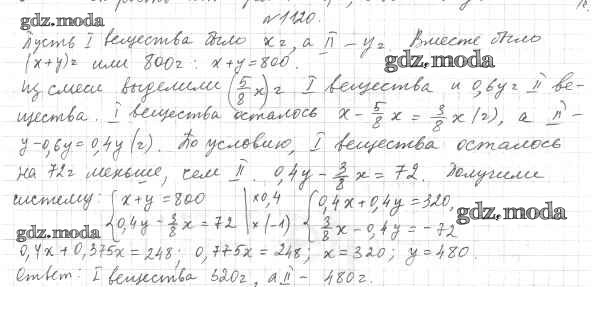 gdz.moda
№1120.
Пусть I вещества было x г, а II – y г. Вместе было
(x+y) г или 800 г: x+y=800.
gdz.moda
Из смеси выделили (5/8 x) г I вещества и 0,6y г II ве-
щества. I вещества осталось x - 5/8 x = 3/8 x (г), а II –
y-0,6y=0,4y (г). По условию, I вещества осталось
на 72 г меньше, чем II. 0,4y - 3/8 x = 72. Получили
систему: { x+y=800 |×0,4 { 0,4x+0,4y=320,
gdz.moda
0,4y - 3/8 x = 72 |×(-1) 3/8 x - 0,4y = -72
gdz.moda
0,4x+0,375x=248; 0,775x=248; x=320; y=480.
Ответ: I вещества 320 г, а II – 480 г.